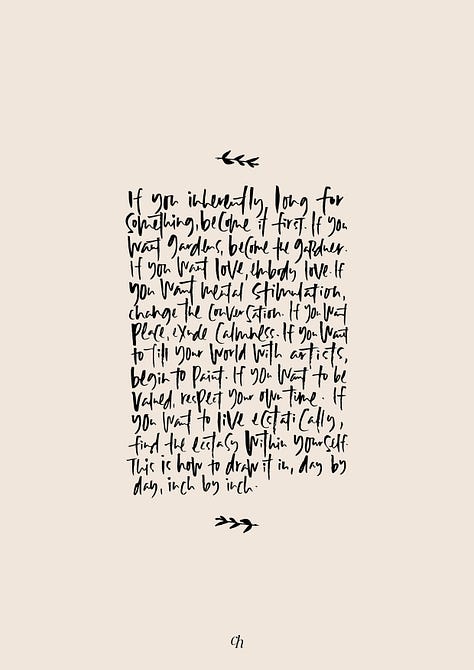 If you inherently long for
something, become it first. If you
want gardens, become the gardner.
If you want love, embody love. If
you want mental stimulation,
change the conversation. If you want
peace, exude calmness. If you want
to fill your world with artists,
begin to paint. If you want to be
valued, respect your own time. If
you want to live ecstatically,
find the ecstasy within yourself.
This is how to draw it in, day by
day, inch by inch.
ch